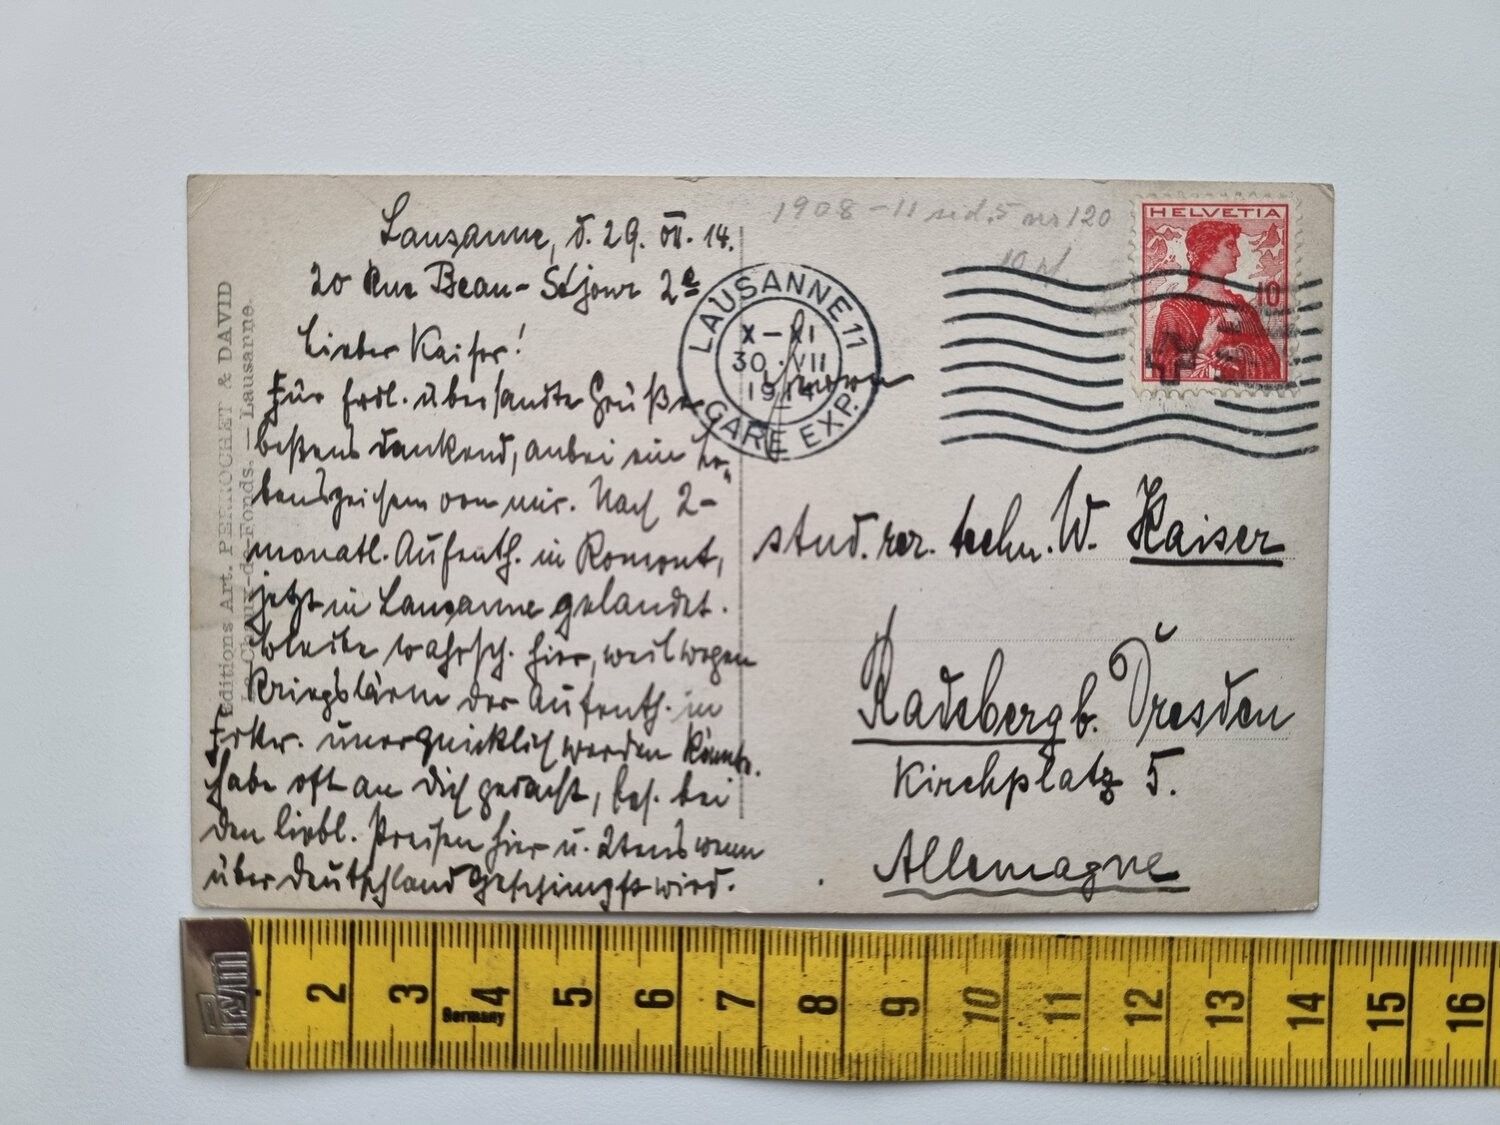 Lausanne, d. 29. VII. 14.
20 Rue Beau-Séjour 2e
Lieber Kaiser!
Für frdl. übersandte Grüße
bestens dankend, anbei ein Le-
benszeichen von mir. Nach 2-
monatl. Aufenth. in Romont,
jetzt in Lausanne gelandet.
Bleibe wahrsch. hier, weil wegen
Kriegslärm der Aufenth. in
Frkr. unerquicklich werden könnte.
Habe oft an Dich gedacht, bes. bei
den liebl. Preisen hier u. 2tens wenn
über Deutschland geschimpft wird.
Editions Art. PERROCHET & DAVID
La Chaux-de-Fonds. — Lausanne.
1908-11 sid. 5 nr 120
10 pf.
HELVETIA
10
LAUSANNE 11
X-XI
30.VII
1914
GARE EXP.
stud. rer. techn. W. Kaiser
Radeberg b. Dresden
Kirchplatz 5.
Allemagne
2 3 4 5 6 7 8 9 10 11 12 13 14 15 16
Germany